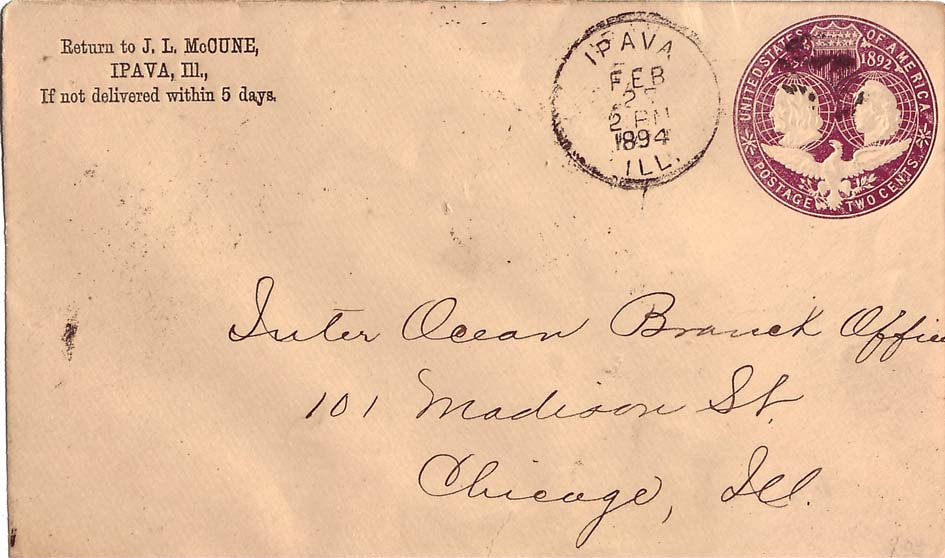 Return to J. L. McCUNE,
IPAVA, Ill.,
If not delivered within 5 days.
IPAVA
FEB
2 PM
1894
ILL.
UNITED STATES OF AMERICA
1892
POSTAGE TWO CENTS
Inter Ocean Branch Office
101 Madison St.
Chicago, Ill.